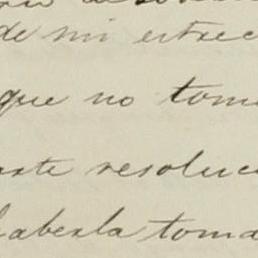 de mi estrec
que no toma
este resoluc
haberla toma